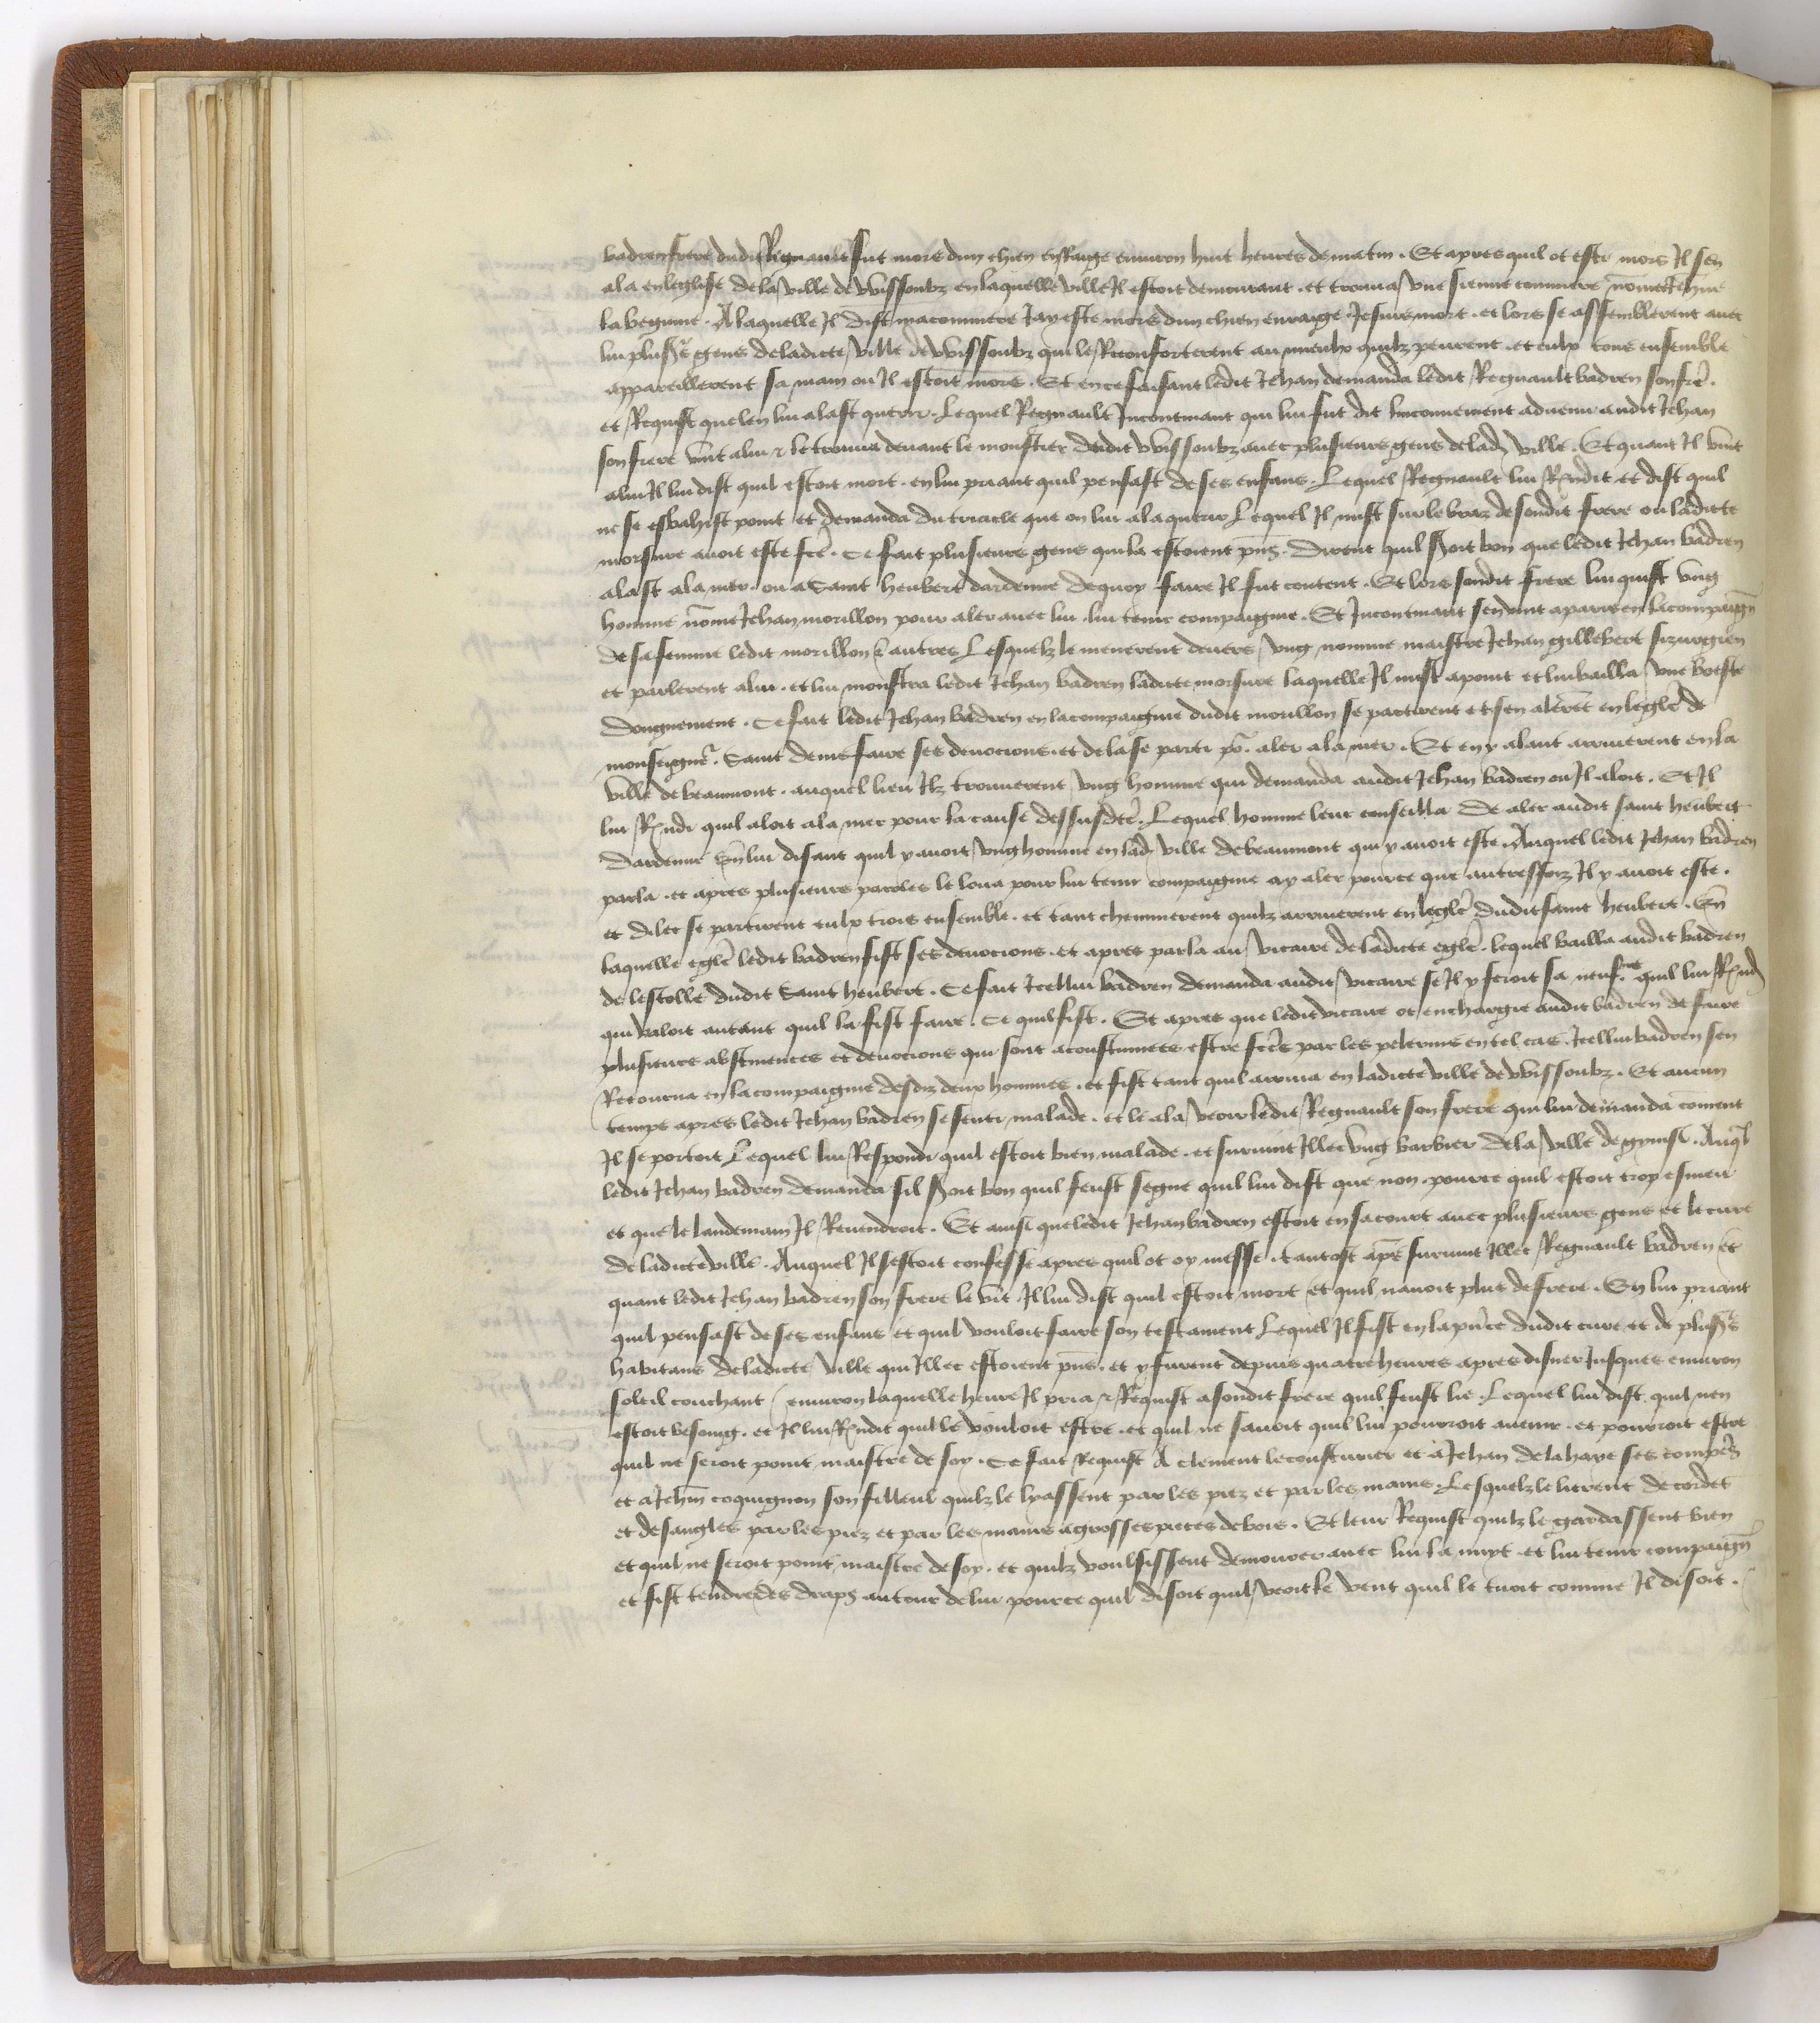 badren frere dudit Regnault fut mors dun chien enraige enuiron huit heures de matin . Et apres quil ot este mors Il sen
ala en leglise de la ville de Wissoubz en laquelle ville Il estoit demourant . et trouua vne sienne commere nōmee Jehāne
la begume . A laquelle Il dist ma commere Jay este mors dun chien enraige . Je suis mort . et lors se assemblerent auec
lui plusrs gens de ladicte ville de Wissoubz qui le Reconforterent au mieulx quilz peurent . et eulx tous ensemble
appareillerent sa main ou Il estoit mors . Et en ce faisant ledit Jehan demanda ledit Regnault badren son frē .
et Requist que len lui alast querir . Lequel Regnault Incontinant qui lui fut dit linconuenient aduenu audit Jehan
son frere vint a lui & le trouua deuant le monstier dudit Wissoubz auec plusieurs gens de lad ville . Et quant Il vint
a lui Il lui dist quil estoit mort . en lui priant quil pensast de ses enfans . Lequel Regnault lui Rndit et dist quil
ne se esbahist point et demanda du triacle que on lui ala querir Lequel Il mist sur le braz de sondit frere ou ladicte
morsure auoit este fcē . Ce fait plusieurs gens qui la estoient pns . dirent quil seroit bon que ledit Jehan badren
alast a la mer . ou a Saint heubert dardenne dequoy faire Il fut content . Et lors sondit frere lui quist vng
homme nōme Jehan morillon pour aler auec lui . lui tenir compaignie . Et Incontinant sen vint a paris en la compaign
de sa femme ledit morillon & autres Lesquelz le menerent deuers vng nomme maistre Jehan gillebert sirurgien
et parlerent a lui . et lui monstra ledit Jehan badren ladicte morsure laquelle Il mist a point et lui bailla vne boeste
dongnement . Ce fait ledit Jehan badren en la compaignie dudit morillon se partirent et sen alerēt en leglē de
monseignr . Saint denis faire ses deuocions . et de la se parti po . aler a la mer . Et en y alant arriuerent en la
ville de beaumont . auquel lieu Ilz trouuerent vng homme qui demanda audit Jehan badren ou Il aloit . Et Il
lui Rndi quil aloit a la mer pour la cause dessusdtē . Lequel homme leur conseilla de aler audit saint heubert
dardenne En lui disant quil y auoit vng homme en lad ville de beaumont qui y auoit este . Auquel ledit Jehan badren
parla . et apres plusieurs paroles le loua pour lui tenir compaignie a y aler pource que autresfoiz Il y auoit este .
et dilec se partirent eulx trois ensemble . et tant cheminerent quilz arriuerent en leglē dudit saint heubert . En
laquelle eglē ledit badren fist ses deuocions . et apres parla au vicaire de ladicte eglē . lequel bailla audit badren
de lestolle dudit Saint heubert . Ce fait Icellui badren demanda audit vicaire se Il y feroit sa neufne . quil lui Rnd
qui valoit autant quil la fist faire . Ce quil fist . Et apres que ledit vicaire ot enchargie audit badren de faire
plusieurs abstinences et deuocions qui sont acoustumees estre fctēs par les pelerins en tel cas . Icellui badren sen
Retourna en la compaignie desdiz deux hommes . et fist tant quil arriua en ladicte ville de Wissoubz . Et aucun
temps apres ledit Jehan badren se senti malade . et le ala veoir ledit Regnault son frere qui lui demanda cōment
Il se portoit Lequel lui Respondi quil estoit bien malade . et suruint Illec vng barbier de la ville de . Auql
ledit Jehan badren demanda sil seroit bon quil feust segne quil lui dist que non . pource quil estoit trop esmeu
et que le landemain Il Reuendroit . Et ainsi que ledit Jehan badren estoit en sa court auec plusieurs gens et le cure
de ladicte ville . Auquel Il sestoit confesse apres quil ot oy messe . tantost apres suruint Illec Regnault badren et
quant ledit Jehan badren son frere le vit . Il lui dist quil estoit mort et quil nauoit plus de frere . En lui priant
quil pensast de ses enfans et quil vouloit faire son testament Lequel Il fist en la pnce dudit cure et de plusrs
habitans de ladicte ville qui Illec estoient pns . et y furent depuis quatre heures apres disner Jusques enuiron
soleil couchant / enuiron laquelle heure Il pria & Requist a sondit frere quil feust lie . Lequel lui dist quil nen
estoit besoing . et Il lui Rndit quil le vouloit estre . et quil ne sauoit quil lui pourroit auenir . et pourroit estre
quil ne seroit point maistre de soy . Ce fait Requist A Clement le cousturier et a Jehan de la haye ses compes
et a Jehn coquignon son filleul quilz le lyassent par les piez et par les mains . Lesquelz le lierent de cordes
et de sangles par les piez et par les mains a grosses pieces de bois . Et leur Requist quilz le gardassent bien
et quil ne seroit point maistre de soy . et quilz voulsissent demourer auec lui la nuyt . et lui tenir compaign
et fist tendre des draps autour de lui pource quil disoit quil veoit le vent quil le tuoit comme Il disoit .